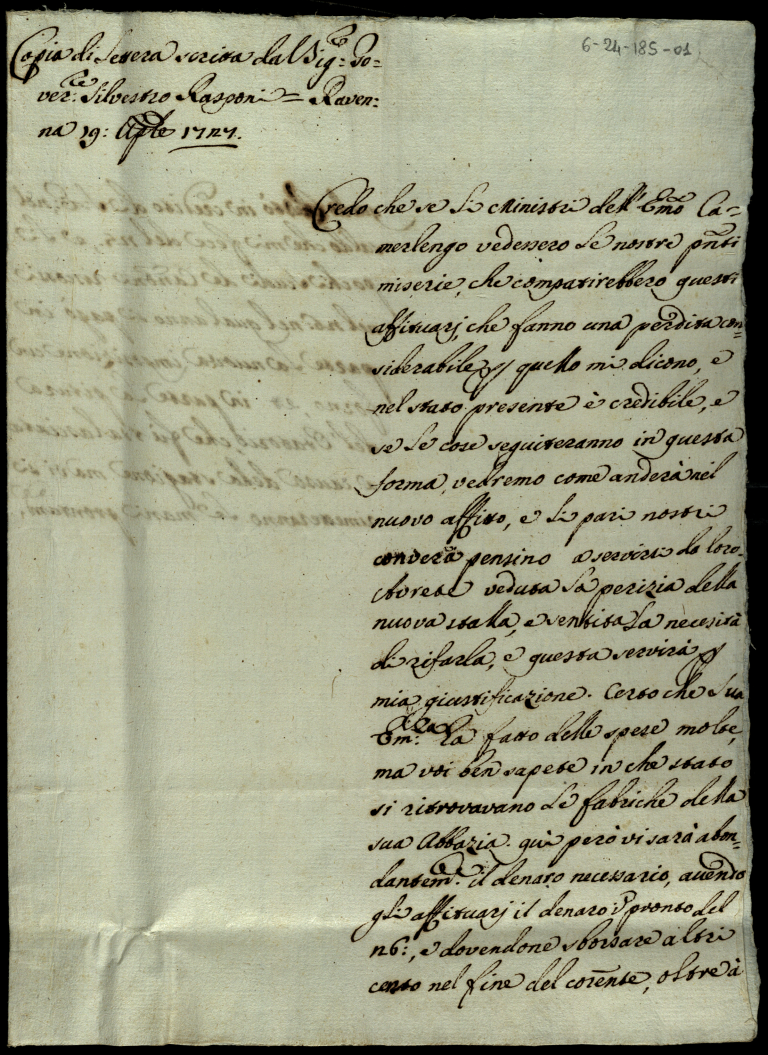 6-24-185-01
Copia di lettera scritta dal Sig:re Go=
ver:re Silvestro Rasponi = Raven=
na 19: Aple 1727.
Credo che se li Ministri dell' Emo Ca=
merlengo vedessero le nostre pnti
miserie, che compatirebbero questi
affituarj, che fanno una perdita con=
siderabile p quello mi dicono, e
nel stato presente è credibile, e
se le cose seguiteranno in questa
forma, vedremo come anderà nel
nuovo affitto, e li pari nostri
pensino a servirsi da loro.
Avrete veduta la perizia della
nuova stalla, e sentita la necesità
di rifarla, e questa servirà p
mia giustificazione. Certo che Sua
Em:za hà fatto delle spese molte,
ma voi ben sapete in che stato
si ritrovavano le fabriche della
sua Abbazia. quì però vi sarà abon=
dantem:te il denaro necessario, avendo
gli affituarj il denaro pronto del
n6:, e dovendone sborsare altri
cento nel fine del corente, oltre à